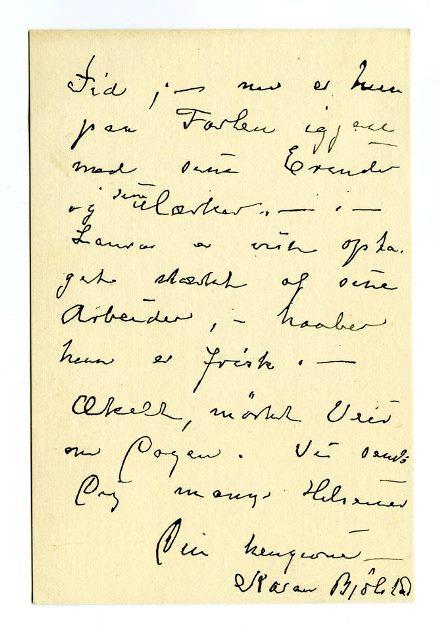 Tid ; — nu er hun
paa Farten igjen
med sine Erender
og sine Mærker. — . —
Laura er vist opta-
get stærkt af sine
Arbeider, — haaber
hun er frisk. —
Ækelt, mörkt Veir
om Dagen. Vi sender
Dig mange Hilsener
Din hengivne —
Karen Bjölstad